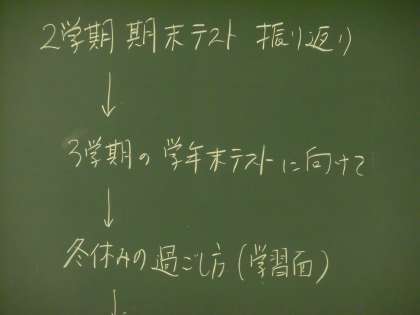 2学期 期末テスト 振り返り
↓
3学期の学年末テストに向けて
↓
冬休みの過ごし方(学習面)
↓